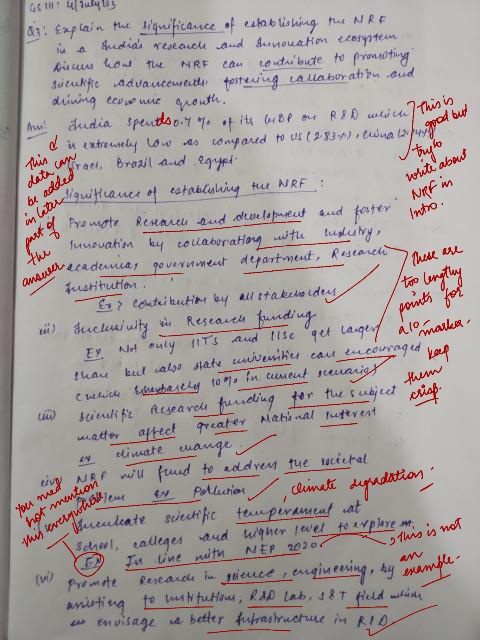 GS III: 4 July '23
Q3: Explain the significance of establishing the NRF
in a India's research and Innovation ecosystem
Discuss how the NRF can contribute to promoting
scientific advancements fostering collaboration and
driving economic growth.
Ans: India spends 0.7% of its GDP on R&D which
is extremely low as compared to US (2.83%), China (2.14%)
Israel, Brazil and Egypt.
This is
good but
try to
write about
NRF in
Intro.
This &
data can
be added
in later
part of
the
answer
Significance of establishing the NRF :
Promote Research and development and foster
Innovation by collaborationg with Industry,
academia, government department, Research
Institution.
Ex> Contribution by all stakeholders
These are
too lengthy
points for
a 10-marker.
keep
them
crisp.
ii) Inclusivity in Research funding
Ex. Not only IITs and IISc get larger
share but also state universities can encouraged
(which 10% in current scenario)
iii) Scientific Research funding for the subject
matter affect greater National Interest
ex climate change.
(iv) NRF will fund to address the societal
Problem ex Pollution
, climate degradation.
You need
not mention
this everywhere
Inculcate scientific temperament at
school, colleges and higher level to explore
Ex In line with NEP 2020
→ This is not
an
example.
(vi) Promote Research in science, engineering, by
assisting to Institutions, R&D Lab, S&T field which
envisage a better Infrastructure in R&D.